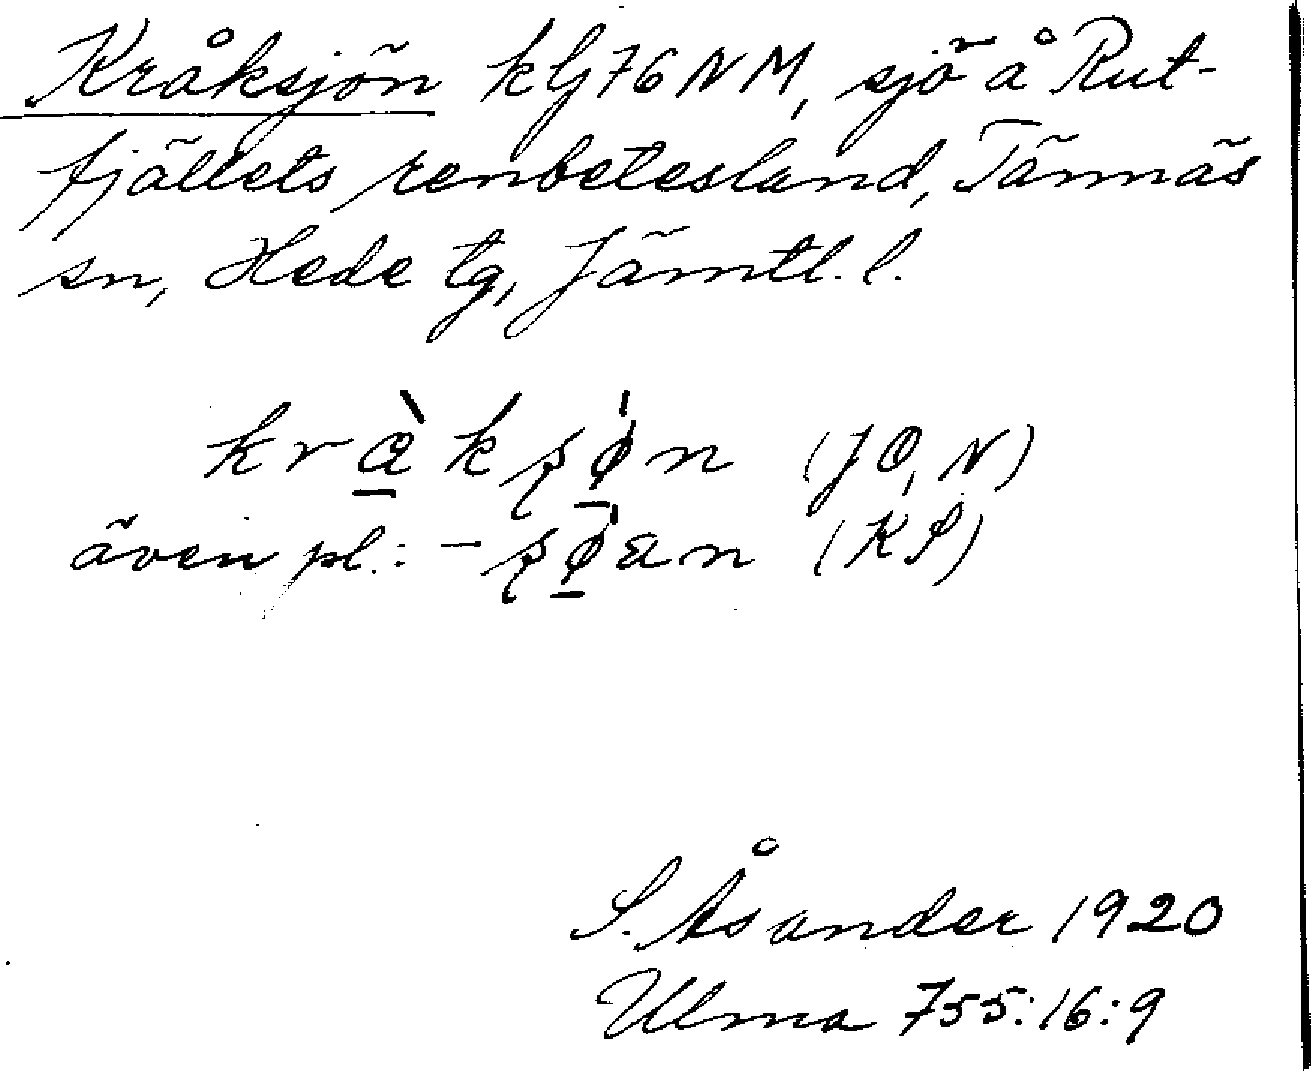 Kråksjön kG76NM, sjö å Rut-
fjällets renbetesland, Tännäs
sn, Hede tg, Jämtl. l.
även pl.: (KS)
S. Åsander 1920
Ulma 755:16:9